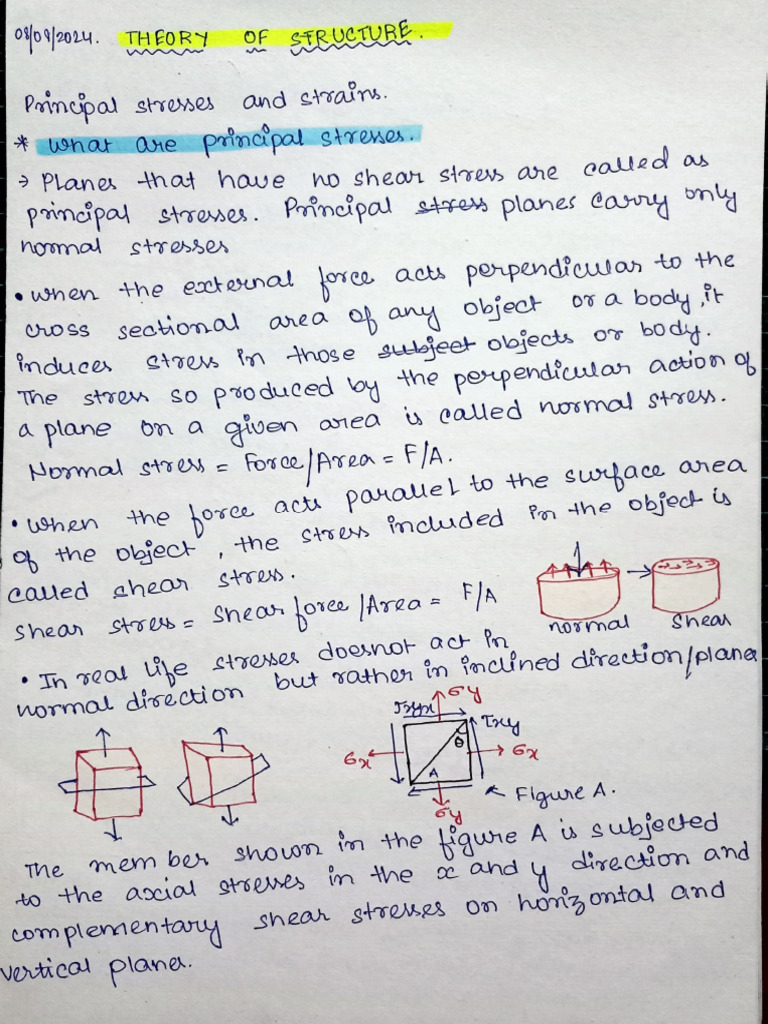 08/08/2024. THEORY OF STRUCTURE.
Principal stresses and strains.
* What are principal stresses.
→ Planes that have no shear stress are called as
principal stresses. Principal stress planes carry only
normal stresses
• When the external force acts perpendicular to the
cross sectional area of any object or a body, it
induces stress in those subject objects or body.
The stress so produced by the perpendicular action of
a plane on a given area is called normal stress.
Normal stress = Force/Area = F/A.
• When the force acts parallel to the surface area
of the object, the stress included in the object is
called shear stress.
Shear stress = Shear force/Area = F/A
normal shear
• In real life stresses doesnot act in
normal direction but rather in inclined direction/planes
σy
τxy
θ
σx σx
A
σy
← Figure A.
The member shown in the figure A is subjected
to the axial stresses in the x and y direction and
complementary shear stresses on horizontal and
vertical planes.